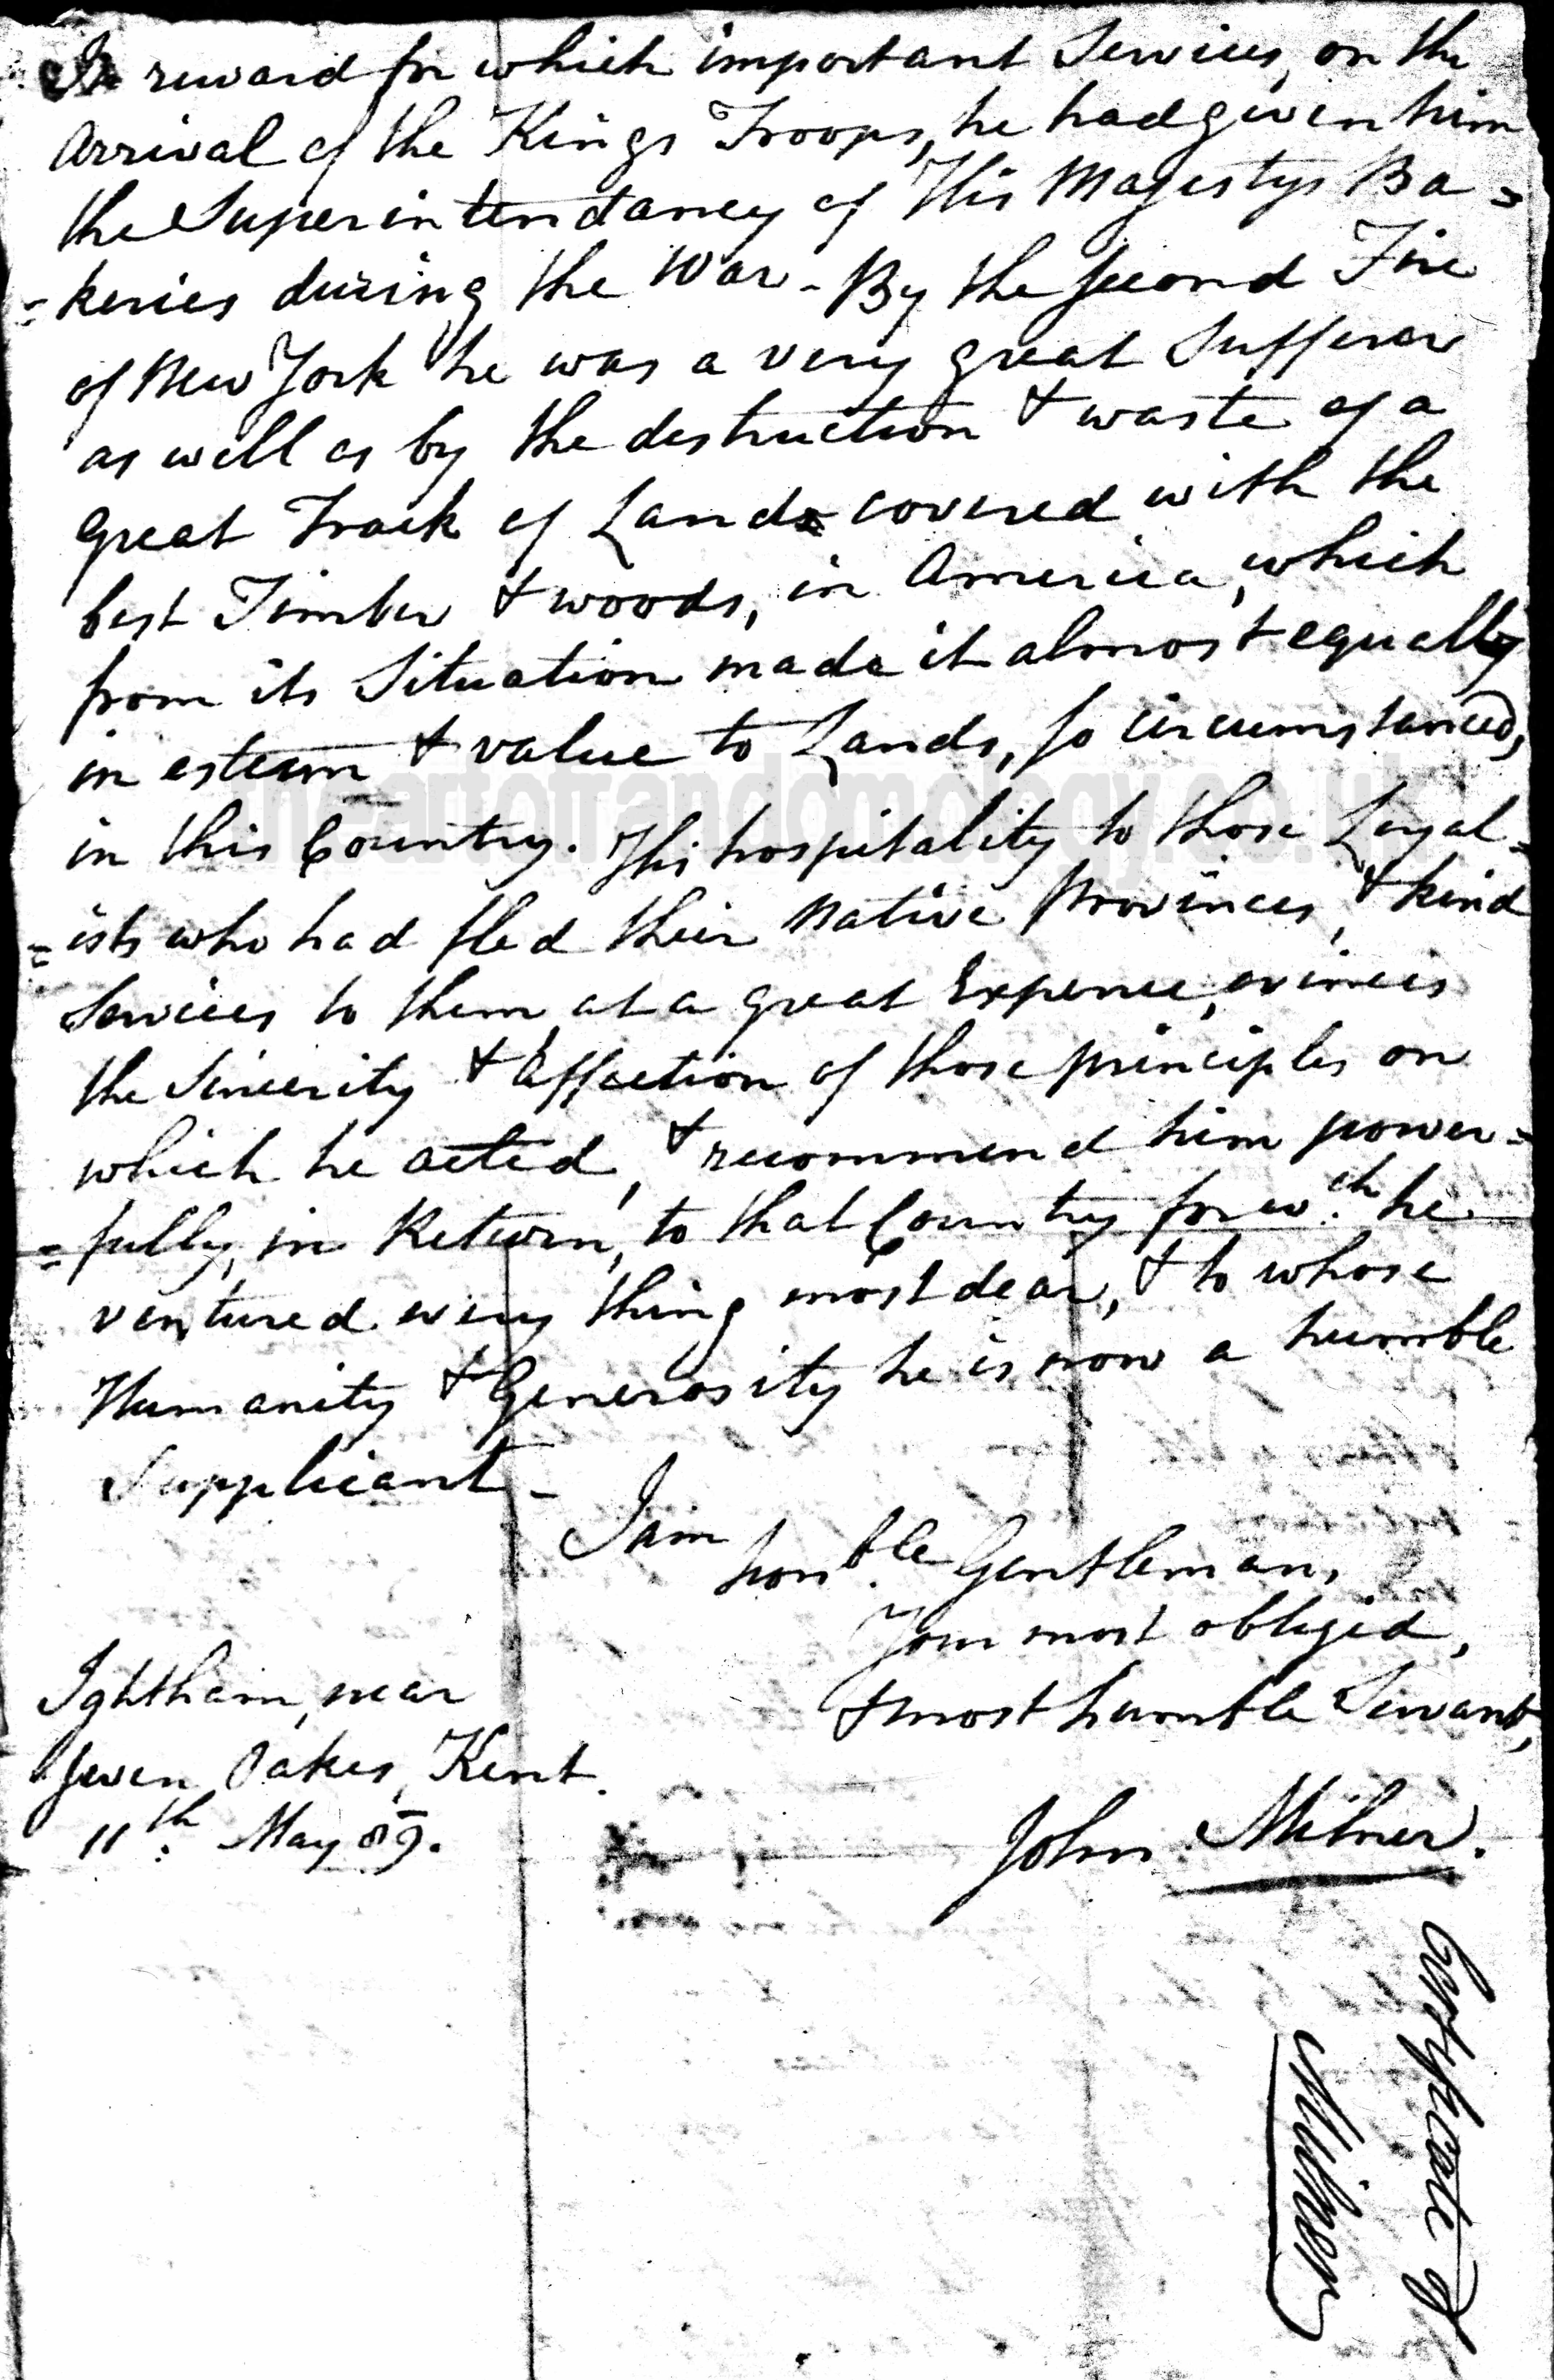 In reward for which important Services, on the
Arrival of the Kings Troops, he had given him
the Superintendancy of His Majestys Ba=
=keries during the War - By the second Fire
of New York he was a very great Sufferer
as well as by the destruction & waste of a
great Track of Lands covered with the
best Timber & woods, in America, which
from its Situation made it almost equally
in esteem & value to Lands, so circumstanced,
in this Country. His hospitality to those Loyal=
=ists who had fled their Native Provinces, & kind
Services to them, at a great Expence, evinces
the Sincerity & Affection of those principles on
which he acted, & recommend him power=
=fully, in Return, to that Country for w.ch he
ventured every thing most dear, & to whose
Humanity & Generosity he is now a humble
Supplicant -
I am
hon.ble Gentleman,
Your most obliged,
& most humble Servant,
Ightham, near
Seven Oakes, Kent.
11th: May 89.
John Milner.
Certificate of
Milner
theartofrandomology.co.uk